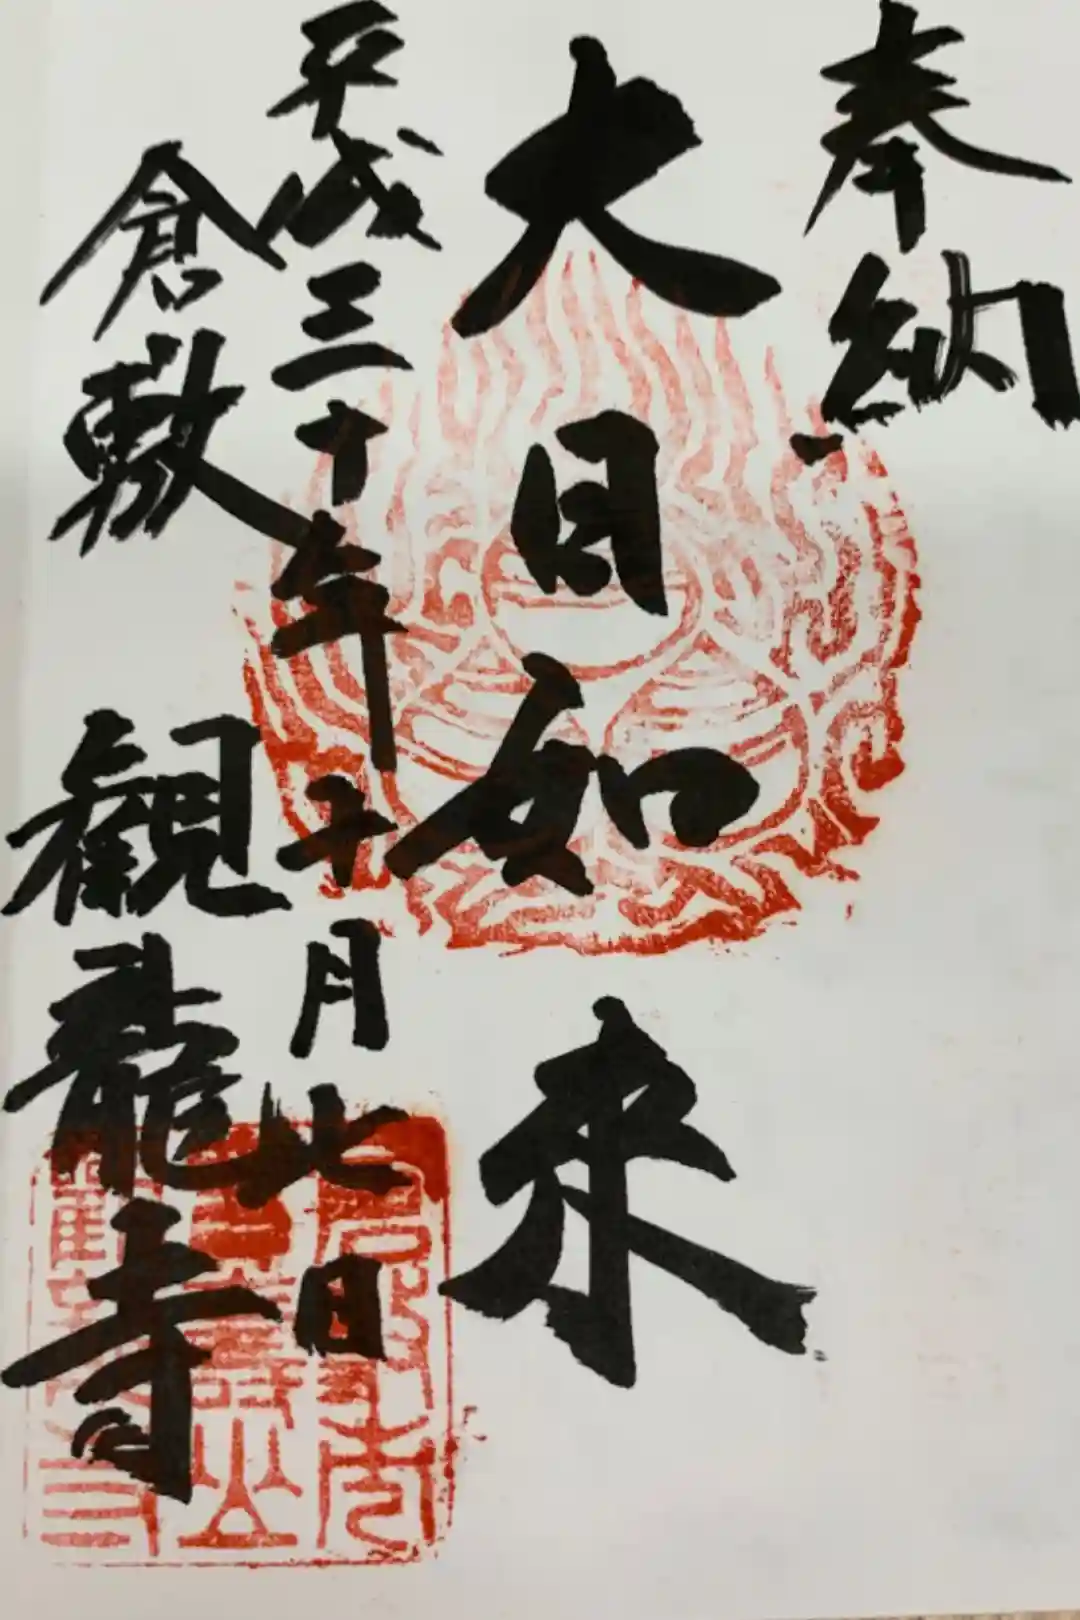 奉納
大日如来
平成三十年 月 日
倉敷 観龍寺